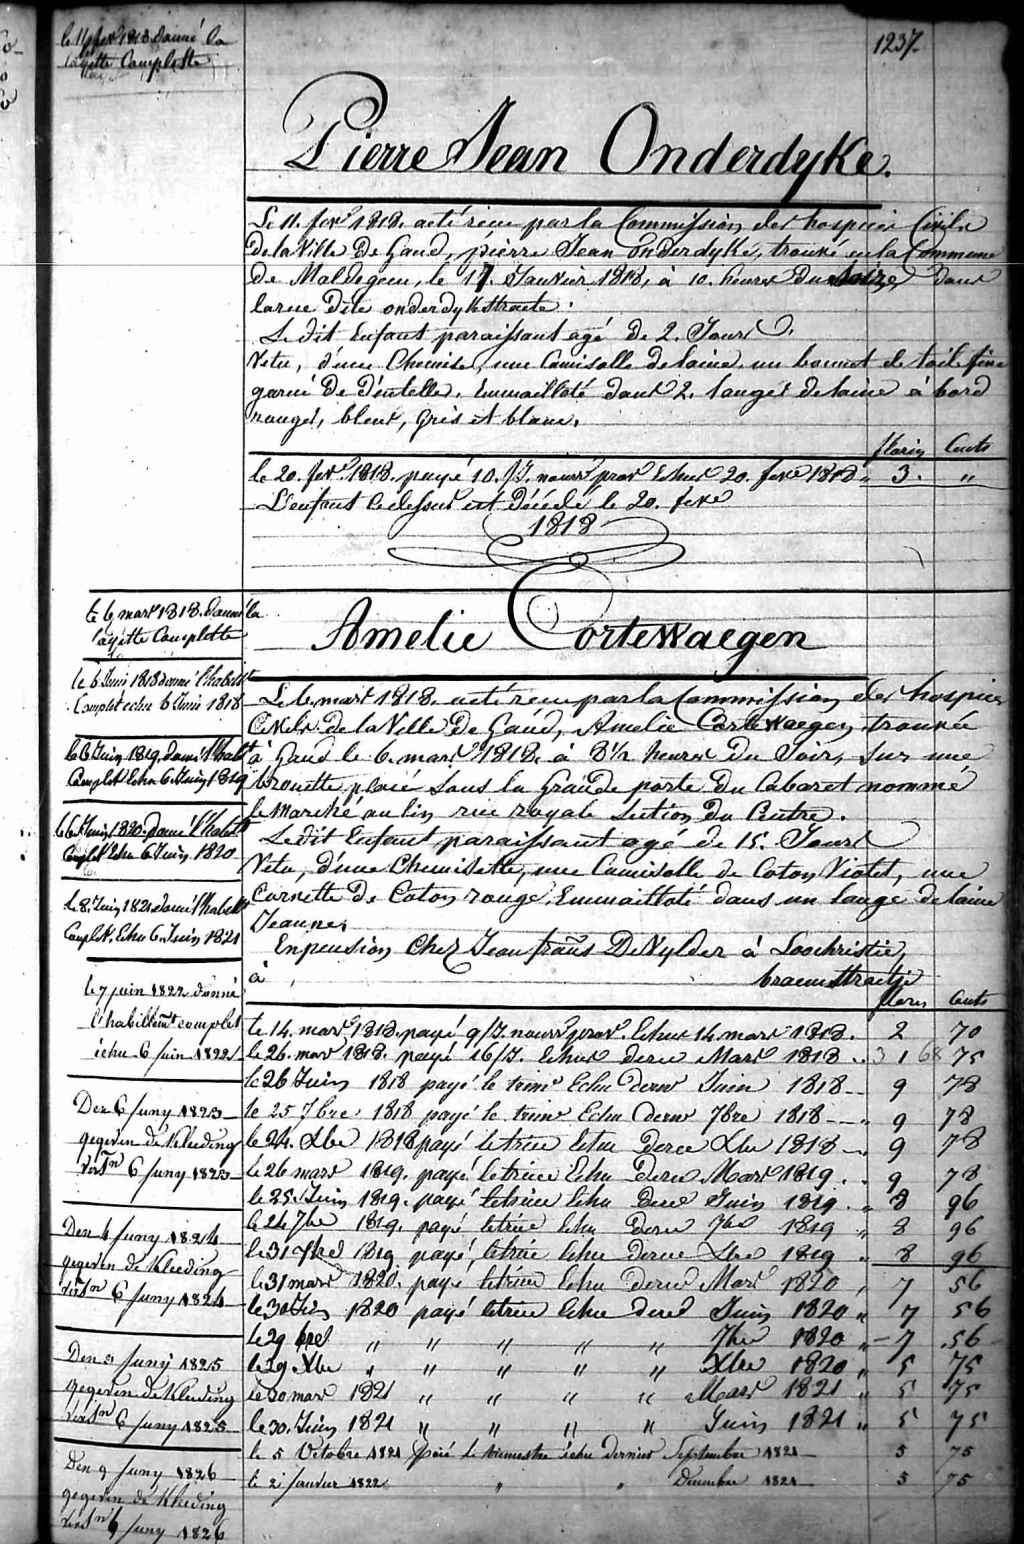 le 11 fevr 1818 donné la
layette Complette
1237.
Pierre Jean Onderdyke.
Le 11. fevr 1818. acté reçu par la Commission des hospices Civils
De la Ville De Gand, pierre Jean Onderdyke, trouvé en la Commune
De Maldegem, le 17 Janvier 1818, à 10. heures du Soire, dans
la rue Dite onderdykstraete.
Le dit Enfant paraissant agé de 2. Jours.
Vetu, d'une Chemise, une Camisolle de laine, un bonnet de toile fine
garni De Dentelle. Emmailloté dans 2. langes de laine à bord
rouges, bleus, gris et blanc.
florins Cents
le 20. fevr 1818. payé 10./J. nourr prov Echus 20. fevr 1818 „ 3. „
L'enfant Cidessus est Décédé le 20. fevr
1818
le 6 mars 1818. donné la
layette Complette
Amelie Cortewaegen
le 6 Juin 1818 donné l'habill
Complet echu 6 Juin 1818
Le 6 mars 1818. acté reçu par la Commission des hospices
Civils de la Ville De Gand, Amelie Cortewaegen, trouvée
à Gand le 6. mars 1818. à 8½ heures du Soir, sur une
brouette placé sous la Grande porte du Cabaret nommé
le Marché au lin rue royale Section du Centre.
Le dit Enfant paraissant agé de 15. Jours
Vetu, d'une Chemisette, une Camisolle de Coton Violet, une
Cornette De Coton rouge, Emmailloté dans un lange de laine
Jeaune.
En pension Chez Jean frans DeVylder à Loochristie,
à braemstraetje
le 6 Juin 1819. donné l'habill
Complet Echu 6. Juin 1819
le 6 Juin 1820. Donné l'habill
Complet Echu 6 Juin 1820
le 8. Juin 1821 donné l'habill
Complet. Echu 6. Juin 1821
le 7 juin 1822 donné
l'habillemt complet
échu 6 juin 1822
Den 6 Juny 1823
gegeven de Kleeding
verstn 6 Juny 1823
Den 4 Juny 1824
gegeven de Kleeding
verstn 6 Juny 1824
Den 3 Juny 1825
gegeven de Kleeding
verstn 6 Juny 1825
Den 9 Juny 1826
gegeven de Kleeding
verstn 6 Juny 1826
florins Cents
le 14. mars 1818. payé 9/J. nourr prov. Echus 14. mars 1818. 2 70
le 26. mars 1818. payé 16/J. Echus dere Mars 1818 .. 3 1 68 75
le 26 Juin 1818 payé le trimr Echu dernr Juin 1818 -- 9 78
le 25 7bre 1818 payé le trimr Echu dernr 7bre 1818 ---„ 9 78
le 24. Xbre 1818 payé letrim Echu Derce Xbre 1818 -„ 9 78
le 26 mars 1819. payé letrim Echu Derce Mars 1819. . 9 78
le 25. Juin 1819. payé letrim Echu Derce Juin 1819 .„ 8 96
le 24 7bre 1819. payé letrim Echu Derce 7bre 1819 „ 8 96
le 31 Xbre 1819 payé, letrim Echu Derce Xbre 1819 „ 8 96
le 31 mars 1820. payé letrim Echu Derce Mars 1820 , 7 56
le 30 Juin 1820 payé letrim Echu dered Juin 1820 „ 7 56
le 29 „ „ „ „ „ 7bre 1820 „ 7 56
le 29 Xbre „ „ „ „ „ Xbre 1820 „ 5 75
le 30 mars 1821 „ „ „ „ Mars 1821 „ 5 75
le 30. Juin 1821 „ „ „ „ Juin 1821 „ 5 75
le 5 Octobre 1821 Payé le trimestre échu dernier Septembre 1821 5 75
le 2 janvier 1822 „ „ Décembre 1821 5 75